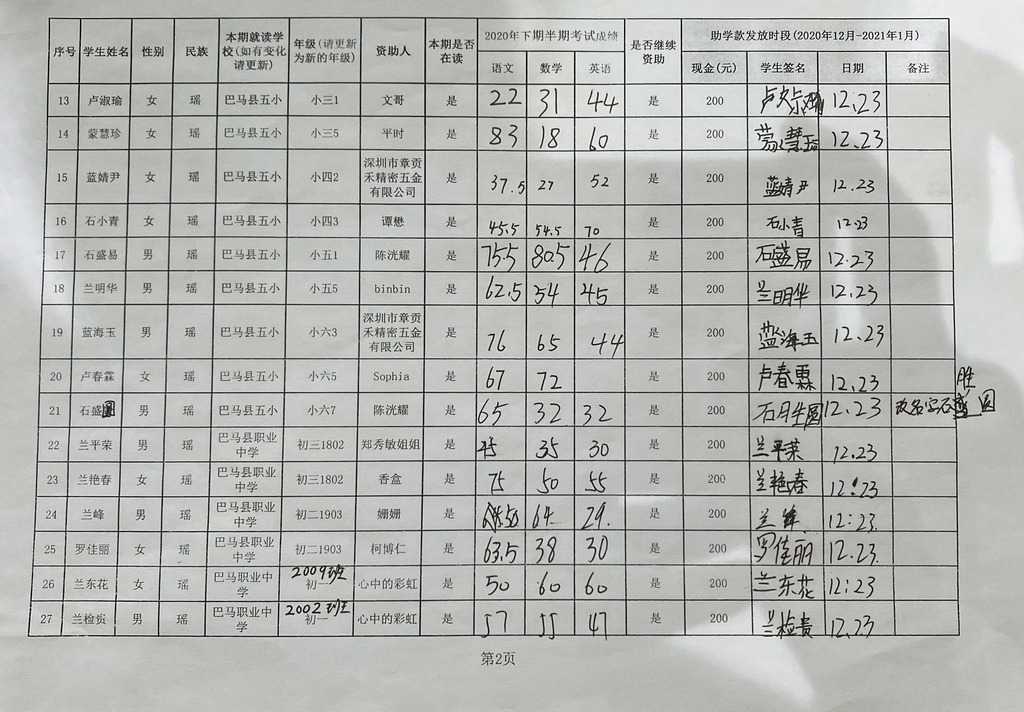 序号 学生姓名 性别 民族 本期就读学校(如有变化请更新) 年级(请更新为新的年级) 资助人 本期是否在读 2020年下期半期考试成绩 是否继续资助 助学款发放时段(2020年12月-2021年1月)
语文 数学 英语 现金(元) 学生签名 日期 备注
13 卢淑瑜 女 瑶 巴马县五小 小三1 文哥 是 22 31 44 是 200 卢淑瑜 12.23
14 蒙慧珍 女 瑶 巴马县五小 小三5 平时 是 83 18 60 是 200 蒙慧珍 12.23
15 蓝婧尹 女 瑶 巴马县五小 小四2 深圳市章贡禾精密五金有限公司 是 37.5 27 52 是 200 蓝婧尹 12.23
16 石小青 女 瑶 巴马县五小 小四3 谭懋 是 45.5 54.5 70 是 200 石小青 12.23
17 石盛易 男 瑶 巴马县五小 小五1 陈洸耀 是 75.5 80.5 46 是 200 石盛易 12.23
18 兰明华 男 瑶 巴马县五小 小五5 binbin 是 62.5 54 45 是 200 兰明华 12.23
19 蓝海玉 男 瑶 巴马县五小 小六3 深圳市章贡禾精密五金有限公司 是 76 65 44 是 200 蓝海玉 12.23
20 卢春霖 女 瑶 巴马县五小 小六5 Sophia 是 67 72 是 200 卢春霖 12.23
21 石盛圆 男 瑶 巴马县五小 小六7 陈洸耀 是 65 32 32 是 200 石胜圆 12.23 改名字石胜圆
22 兰平荣 男 瑶 巴马县职业中学 初三1802 郑秀敏姐姐 是 45 35 30 是 200 兰平荣 12.23
23 兰艳春 女 瑶 巴马县职业中学 初三1802 香盒 是 75 50 55 是 200 兰艳春 12:23
24 兰峰 男 瑶 巴马县职业中学 初二1903 姗姗 是 64. 29. 是 200 兰峰 12:23.
25 罗佳丽 女 瑶 巴马县职业中学 初二1903 柯博仁 是 63.5 38 30 是 200 罗佳丽 12.23.
26 兰东花 女 瑶 巴马职业中学 初一 2009班 心中的彩虹 是 50 60 60 是 200 兰东花 12:23
27 兰检贵 男 瑶 巴马县职业中学 初一 2002班 心中的彩虹 是 57 55 47 是 200 兰检贵 12.23
第2页